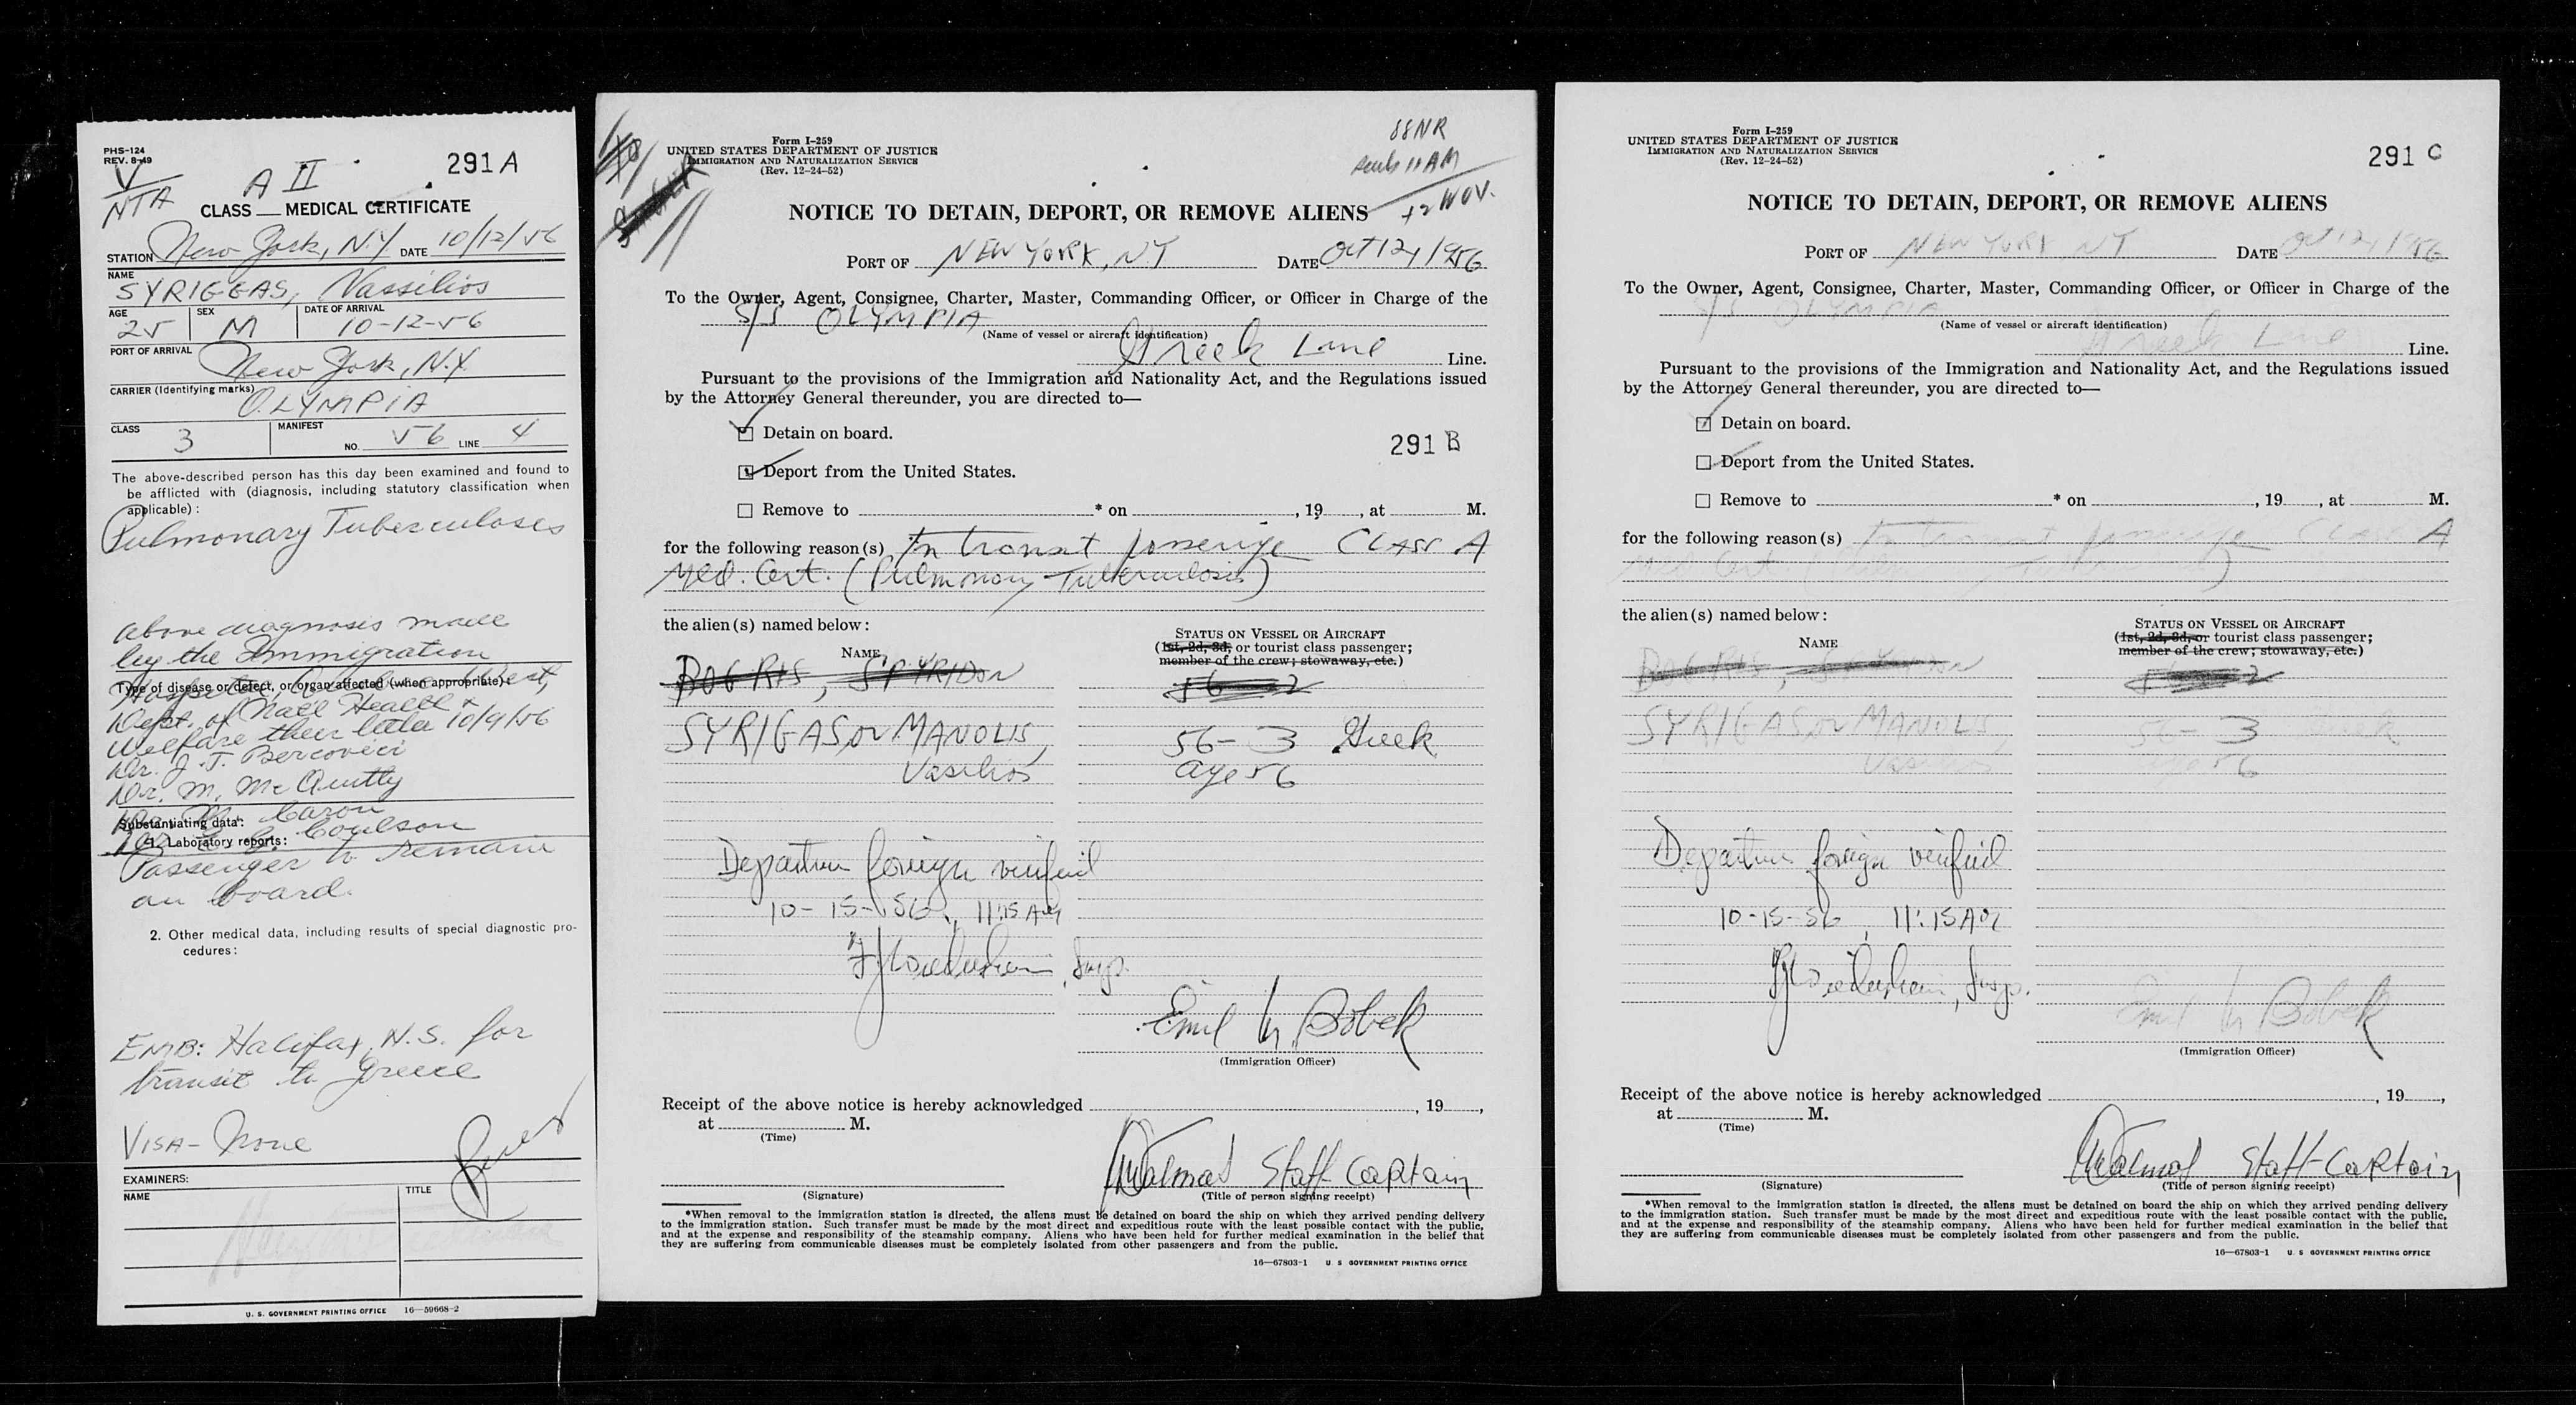 PHS-124
REV. 8-49
V
NTA
A II
291 A
CLASS MEDICAL CERTIFICATE
STATION New York, N.Y. DATE 10/12/56
NAME
SYRIGGAS, Vassilios
AGE 25 SEX M DATE OF ARRIVAL 10-12-56
PORT OF ARRIVAL New York, N.Y.
CARRIER (Identifying marks) OLYMPIA
CLASS 3 MANIFEST NO. 56 LINE 4
The above-described person has this day been examined and found to
be afflicted with (diagnosis, including statutory classification when
applicable):
Pulmonary Tuberculoses
above diagnosis made
by the Immigration
Hospital, Quebec West,
Type of disease or defect, or organ affected (when appropriate):
Dept. of Nat'l Health &
Welfare their letter 10/9/56
Dr. J. T. Bercovici
Dr. M. McQuitty
Caron
Substantiating data:
Coulson
1. Laboratory reports:
Passenger to remain
on board.
2. Other medical data, including results of special diagnostic pro-
cedures:
EMB: Halifax, N.S. for
transit to Greece
VISA - None
EXAMINERS:
NAME TITLE
U. S. GOVERNMENT PRINTING OFFICE 16—59668-2
Form I-259
UNITED STATES DEPARTMENT OF JUSTICE
IMMIGRATION AND NATURALIZATION SERVICE
(Rev. 12-24-52)
88NR
11 AM
NOTICE TO DETAIN, DEPORT, OR REMOVE ALIENS
PORT OF NEW YORK, NY DATE Oct 12, 1956
To the Owner, Agent, Consignee, Charter, Master, Commanding Officer, or Officer in Charge of the
S/S OLYMPIA
(Name of vessel or aircraft identification)
Greek Line Line.
Pursuant to the provisions of the Immigration and Nationality Act, and the Regulations issued
by the Attorney General thereunder, you are directed to—
Detain on board.
291 B
Deport from the United States.
Remove to * on , 19 , at M.
for the following reason(s) In transit passenger CLASS A
Med. Cert. (Pulmonary Tuberculosis)
the alien(s) named below:
NAME
STATUS ON VESSEL OR AIRCRAFT
(1st, 2d, 3d, or tourist class passenger;
member of the crew; stowaway, etc.)
BOGRIS, SPYRIDON 56 2
SYRIGAS or MANOLIS, 56-3 Greek
Vasilios age 56
Departure foreign verified
10-15-56, 11:15 AM
Insp.
Emil M. Bobek
(Immigration Officer)
Receipt of the above notice is hereby acknowledged , 19 ,
at M.
(Time)
Staff Captain
(Signature) (Title of person signing receipt)
*When removal to the immigration station is directed, the aliens must be detained on board the ship on which they arrived pending delivery
to the immigration station. Such transfer must be made by the most direct and expeditious route with the least possible contact with the public,
and at the expense and responsibility of the steamship company. Aliens who have been held for further medical examination in the belief that
they are suffering from communicable diseases must be completely isolated from other passengers and from the public.
16—67803-1 U. S. GOVERNMENT PRINTING OFFICE
Form I-259
UNITED STATES DEPARTMENT OF JUSTICE
IMMIGRATION AND NATURALIZATION SERVICE
(Rev. 12-24-52)
291 C
NOTICE TO DETAIN, DEPORT, OR REMOVE ALIENS
PORT OF NEW YORK, NY DATE Oct 12, 1956
To the Owner, Agent, Consignee, Charter, Master, Commanding Officer, or Officer in Charge of the
S/S OLYMPIA
(Name of vessel or aircraft identification)
Greek Line Line.
Pursuant to the provisions of the Immigration and Nationality Act, and the Regulations issued
by the Attorney General thereunder, you are directed to—
Detain on board.
Deport from the United States.
Remove to * on , 19 , at M.
for the following reason(s) In transit passenger CLASS A
Med. Cert. (Pulmonary Tuberculosis)
the alien(s) named below:
NAME
STATUS ON VESSEL OR AIRCRAFT
(1st, 2d, 3d, or tourist class passenger;
member of the crew; stowaway, etc.)
BOGRIS, SPYRIDON 56 2
SYRIGAS or MANOLIS, 56-3 Greek
Vasilios age 56
Departure foreign verified
10-15-56, 11:15 AM
Insp.
Emil M. Bobek
(Immigration Officer)
Receipt of the above notice is hereby acknowledged , 19 ,
at M.
(Time)
Staff-Captain
(Signature) (Title of person signing receipt)
*When removal to the immigration station is directed, the aliens must be detained on board the ship on which they arrived pending delivery
to the immigration station. Such transfer must be made by the most direct and expeditious route with the least possible contact with the public,
and at the expense and responsibility of the steamship company. Aliens who have been held for further medical examination in the belief that
they are suffering from communicable diseases must be completely isolated from other passengers and from the public.
16—67803-1 U. S. GOVERNMENT PRINTING OFFICE